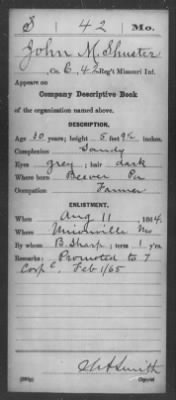 S 42 Mo.
John M. Shuster
Co. E, 42 Reg't Missouri Inf.
Appears on
Company Descriptive Book
of the organization named above.
DESCRIPTION.
Age 30 years; height 5 feet 9½ inches.
Complexion Sandy
Eyes grey; hair dark
Where born Beever Pa
Occupation Farmer
ENLISTMENT.
When Aug 11, 1864.
Where Unionville Mo
By whom B. Sharp; term 1 y'rs.
Remarks: Promoted to 7
Corp'l Feb 1/65
Smith
Copyist